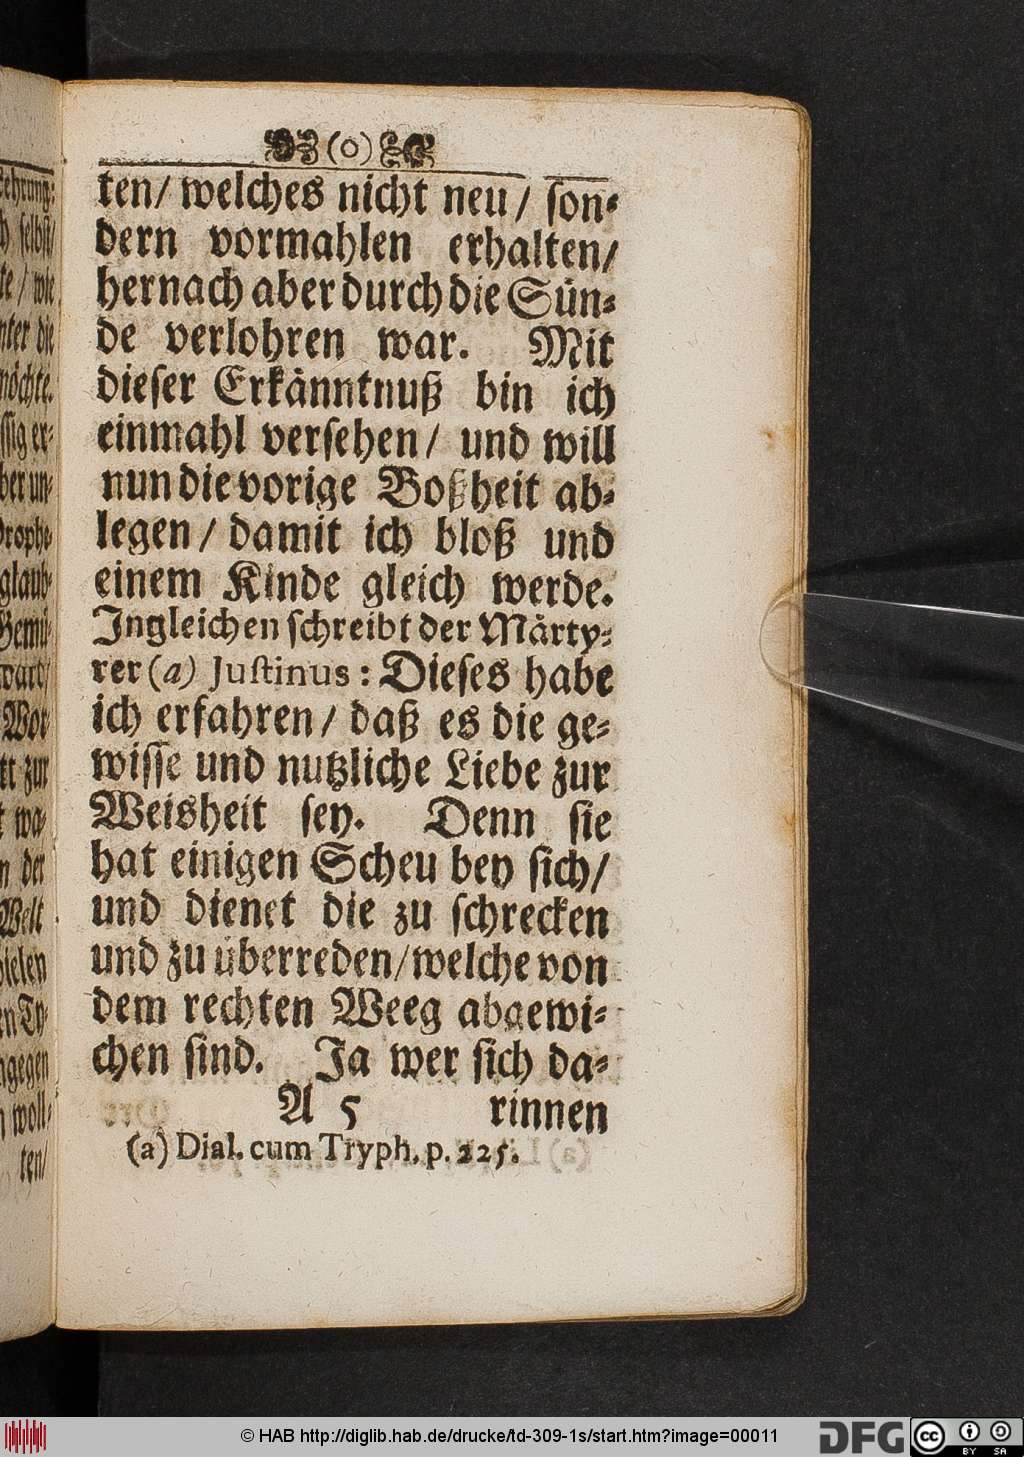 (o)
ten/ welches nicht neu/ son-
dern vormahlen erhalten/
hernach aber durch die Sün-
de verlohren war. Mit
dieser Erkänntnuß bin ich
einmahl versehen/ und will
nun die vorige Boßheit ab-
legen/ damit ich bloß und
einem Kinde gleich werde.
Ingleichen schreibt der Märty-
rer (a) Justinus: Dieses habe
ich erfahren/ daß es die ge-
wisse und nutzliche Liebe zur
Weisheit sey. Denn sie
hat einigen Scheu bey sich/
und dienet die zu schrecken
und zu überreden/ welche von
dem rechten Weeg abgewi-
chen sind. Ja wer sich da-
A 5 rinnen
(a) Dial. cum Tryph. p. 225.
© HAB http://diglib.hab.de/drucke/td-309-1s/start.htm?image=00011
DFG
cc BY SA